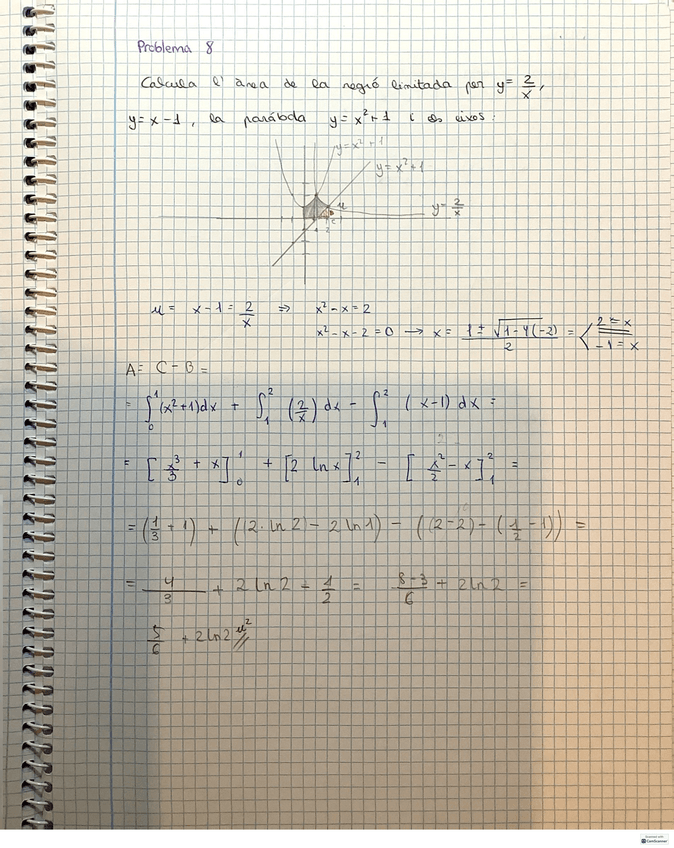 Problema 8
Calcula l'àrea de la regió limitada per y = 2/x,
y = x - 1, la paràbola y = x² + 1 i els eixos:
y = x² + 1
y = x² + 1
y = 2/x
M
C
1 2
M = x - 1 = 2/x ⇒ x² - x = 2
x² - x - 2 = 0 → x = (1 ± √(1 - 4(-2)))/2 = < 2 = x
-1 = x
A = C - B =
= ∫₀¹ (x² + 1) dx + ∫₁² (2/x) dx - ∫₁² (x - 1) dx =
= [x³/3 + x]₀¹ + [2 ln x]₁² - [x²/2 - x]₁² =
= (1/3 + 1) + (2·ln 2 - 2 ln 1) - ((2 - 2) - (1/2 - 1)) =
= 4/3 + 2 ln 2 - 1/2 = (8 - 3)/6 + 2 ln 2 =
5/6 + 2 ln 2 u²
Scanned with
CamScanner